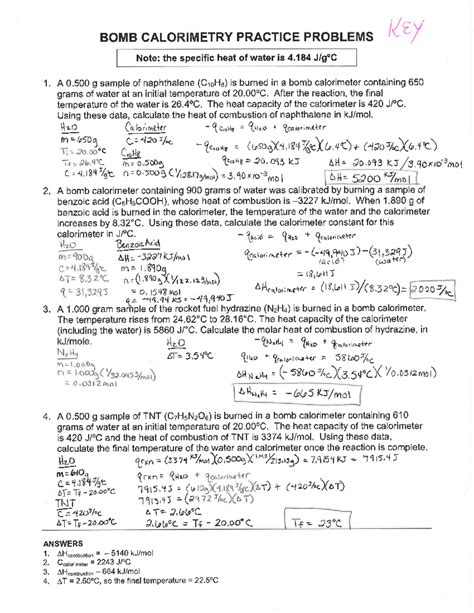 BOMB CALORIMETRY PRACTICE PROBLEMS KEY
Note: the specific heat of water is 4.184 J/g°C
1. A 0.500 g sample of naphthalene (C₁₀H₈) is burned in a bomb calorimeter containing 650
grams of water at an initial temperature of 20.00°C. After the reaction, the final
temperature of the water is 26.4°C. The heat capacity of the calorimeter is 420 J/°C.
Using these data, calculate the heat of combustion of naphthalene in kJ/mol.
H₂O Calorimeter
m = 650g C = 420 J/°C
Ti = 20.00°C
Tf = 26.4°C m = 0.500g
C = 4.184 J/g°C
-qC₁₀H₈ = qH₂O + qcalorimeter
-qC₁₀H₈ = (650g)(4.184 J/g°C)(6.4°C) + (420 J/°C)(6.4°C)
qC₁₀H₈ = 20.093 KJ ΔH = 20.093 KJ / 3.90x10⁻³ mol
ΔH = 5200 KJ/mol
2. A bomb calorimeter containing 900 grams of water was calibrated by burning a sample of
benzoic acid (C₆H₅COOH), whose heat of combustion is –3227 kJ/mol. When 1.890 g
of benzoic acid is burned in the calorimeter, the temperature of the water and the calorimeter
increases by 8.32°C. Using these data, calculate the calorimeter constant for this
calorimeter in J/°C.
H₂O Benzoic Acid
m = 900g ΔH = -3227 KJ/mol
C = 4.184 J/g°C m = 1.890g
ΔT = 8.32°C
q = 31,329J = 0.1548 mol
q = -49.94 KJ = -49,940J
-qacid = qH₂O + qcalorimeter
qcalorimeter = -(-49,940J) - (31,329J)
(acid) (water)
= 18,611J
ΔHcalorimeter = (18,611J)/(8.32°C) = 2000 J/°C
3. A 1.000 gram sample of the rocket fuel hydrazine (N₂H₄) is burned in a bomb calorimeter.
The temperature rises from 24.62°C to 28.16°C. The heat capacity of the calorimeter
(including the water) is 5860 J/°C. Calculate the molar heat of combustion of hydrazine, in
kJ/mole.
N₂H₄ H₂O
m = 1.000g ΔT = 3.54°C
= 0.0312 mol
-qN₂H₄ = qH₂O + qcalorimeter
qH₂O + qcalorimeter = 5860 J/°C
ΔHN₂H₄ = (-5860 J/°C)(3.54°C)(1/0.0312mol)
ΔHN₂H₄ = -665 KJ/mol
4. A 0.500 g sample of TNT (C₇H₅N₂O₆) is burned in a bomb calorimeter containing 610
grams of water at an initial temperature of 20.00°C. The heat capacity of the calorimeter
is 420 J/°C and the heat of combustion of TNT is 3374 kJ/mol. Using these data,
calculate the final temperature of the water and calorimeter once the reaction is complete.
H₂O
m = 610g
C = 4.184 J/g°C
ΔT = Tf - 20.00°C
TNT
C = 420 J/°C
ΔT = Tf - 20.00°C
qrxn = (3374 KJ/mol)(0.500g) = 7.9154KJ = 7915.4J
qrxn = qH₂O + qcalorimeter
7915.4J = (610g)(4.184 J/g°C)(ΔT) + (420 J/°C)(ΔT)
7915.4J = (2972 J/°C)(ΔT)
ΔT = 2.66°C
2.66°C = Tf - 20.00°C Tf = 23°C
ANSWERS
1. ΔHcombustion = – 5140 kJ/mol
2. Ccalorimeter = 2243 J/°C
3. ΔHcombustion – 664 kJ/mol
4. ΔT = 2.50°C, so the final temperature = 22.5°C